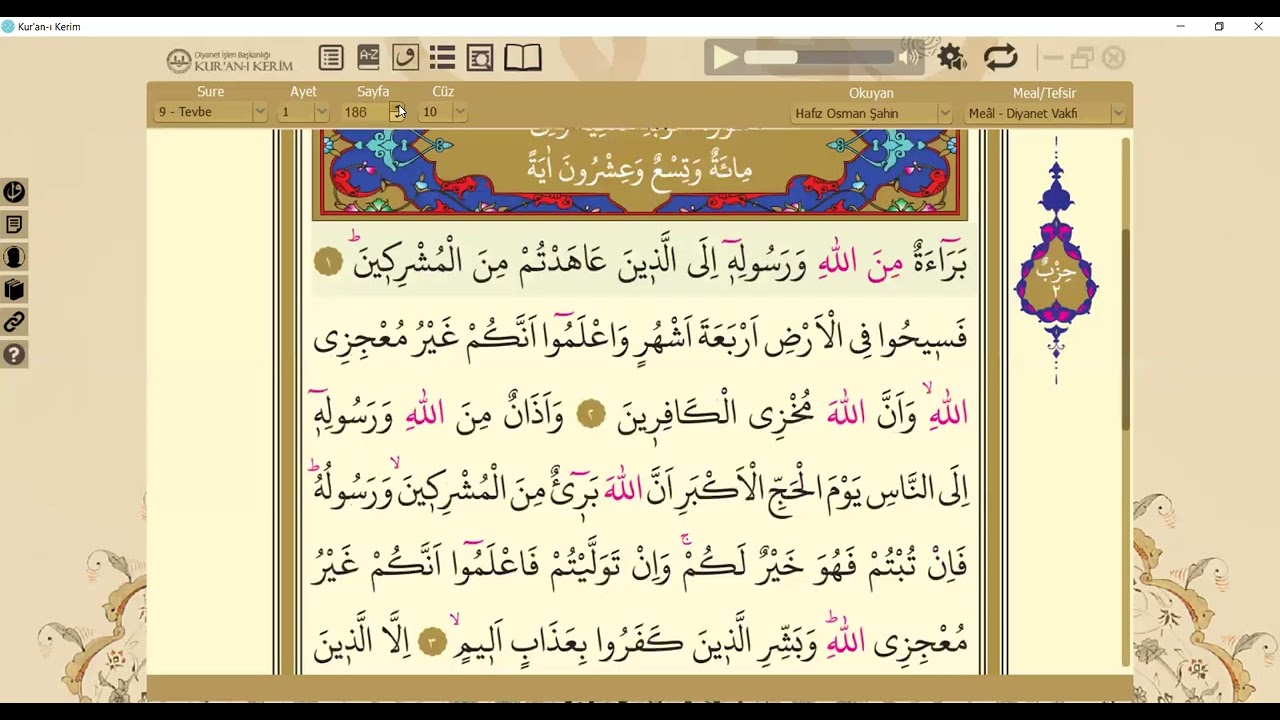 Kur'an-ı Kerim
Diyanet İşleri Başkanlığı
KUR'AN-I KERİM
A-Z
Sure Ayet Sayfa Cüz Okuyan Meal/Tefsir
9 - Tevbe 1 186 10 Hafız Osman Şahin Meâl - Diyanet Vakfı
مِائَةٌ وَتِسْعٌ وَعِشْرُونَ اٰيَةً
بَرَٓاءَةٌ مِنَ اللّٰهِ وَرَسُولِه۪ٓ اِلَى الَّذ۪ينَ عَاهَدْتُمْ مِنَ الْمُشْرِك۪ينَۜ ١
فَس۪يحُوا فِي الْاَرْضِ اَرْبَعَةَ اَشْهُرٍ وَاعْلَمُٓوا اَنَّكُمْ غَيْرُ مُعْجِزِي
اللّٰهِۙ وَاَنَّ اللّٰهَ مُخْزِي الْكَافِر۪ينَ ٢ وَاَذَانٌ مِنَ اللّٰهِ وَرَسُولِه۪ٓ
اِلَى النَّاسِ يَوْمَ الْحَجِّ الْاَكْبَرِ اَنَّ اللّٰهَ بَر۪ٓيءٌ مِنَ الْمُشْرِك۪ينَۙ وَرَسُولُهُۜ
فَاِنْ تُبْتُمْ فَهُوَ خَيْرٌ لَكُمْۚ وَاِنْ تَوَلَّيْتُمْ فَاعْلَمُٓوا اَنَّكُمْ غَيْرُ
مُعْجِزِي اللّٰهِۜ وَبَشِّرِ الَّذ۪ينَ كَفَرُوا بِعَذَابٍ اَل۪يمٍۙ ٣ اِلَّا الَّذ۪ينَ
حِزْبٌ
٢